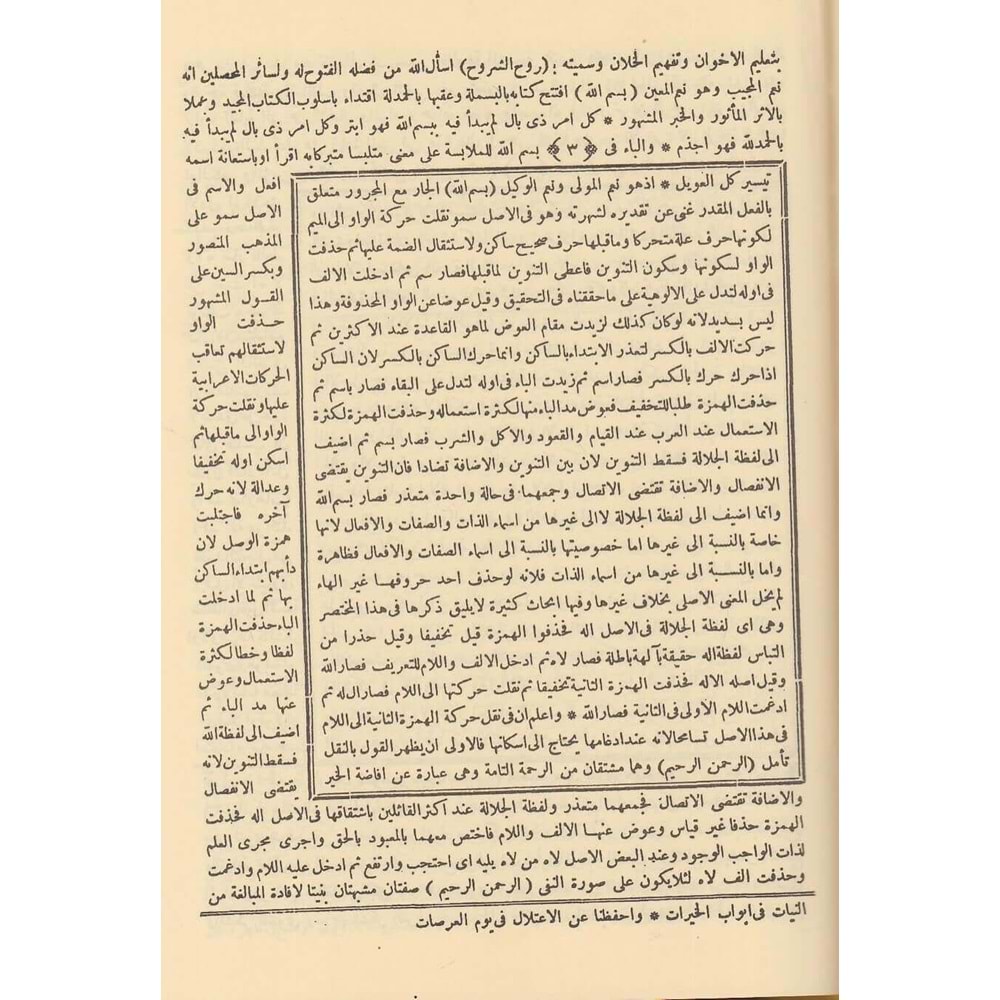 بتعليم الاخوان وتفهيم الخلان وسميته : (روح الشروح) اسأل الله من فضله الفتوح له ولسائر المحصلين انه
نعم المجيب وهو نعم المعين (بسم الله) افتتح كتابه بالبسملة وعقبها بالحمدلة اقتداء باسلوب الكتاب المجيد وعملا
بالاثر المأثور والخبر المشهور * كل امر ذى بال لم يبدأ فيه ببسم الله فهو ابتر وكل امر ذى بال لم يبدأ فيه
بالحمدلله فهو اجذم * والباء فى ﴿٣﴾ بسم الله للملابسة على معنى متلبسا متبركابه اقرأ اوباستعانة اسمه
افعل والاسم فى
الاصل سمو على
المذهب المنصور
وبكسر السين على
القول المشهور
حذفت الواو
لاستثقالهم تعاقب
الحركات الاعرابية
عليها ونقلت حركة
الواو الى ماقبلها ثم
اسكن اوله تخفيفا
وعدالة لانه حرك
آخره فاجتلبت
همزة الوصل لان
دأبهم ابتداء الساكن
بها ثم لما ادخلت
الباء حذفت الهمزة
لفظا وخطا لكثرة
الاستعمال وعوض
عنها مد الباء ثم
اضيف الى لفظة الله
فسقط التنوين لانه
يقتضى الانفصال
والاضافة تقتضى الاتصال فجمعهما متعذر ولفظة الجلالة عند اكثر القائلين باشتقاقها فى الاصل اله فحذفت
الهمزة حذفا غير قياس وعوض عنها الالف واللام فاختص معهما بالمعبود بالحق واجرى مجرى العلم
لذات الواجب الوجود وعند البعض الاصل لاه من لاه يليه اى احتجب وارتفع ثم ادخل عليه اللام وادغمت
وحذفت الف لاه لئلا يكون على صورة النفى (الرحمن الرحيم) صفتان مشبهتان بنيتا لافادة المبالغة من
تيسير كل العويل * اذهو نعم المولى ونعم الوكيل (بسم الله) الجار مع المجرور متعلق
بالفعل المقدر غنى عن تقديره لشهرته وهو فى الاصل سمو نقلت حركة الواو الى الميم
لكونها حرف علة متحركا وماقبلها حرف صحيح ساكن ولاستثقال الضمة عليها ثم حذفت
الواو لسكونها وسكون التنوين فاعطى التنوين لماقبلها فصار سم ثم ادخلت الالف
فى اوله لتدل على الالوهية على ماحققناه فى التحقيق وقيل عوضا عن الواو المحذوفة وهذا
ليس بسديد لانه لوكان كذلك لزيدت مقام العوض لماهو القاعدة عند الاكثرين ثم
حركت الالف بالكسر لتعذر الابتداء بالساكن وانما حرك الساكن بالكسر لان الساكن
اذا حرك حرك بالكسر فصار اسم ثم زيدت الباء فى اوله لتدل على البقاء فصار باسم ثم
حذفت الهمزة طلبا للتخفيف فعوض مد الباء منها لكثرة استعماله وحذفت الهمزة لكثرة
الاستعمال عند العرب عند القيام والقعود والاكل والشرب فصار بسم ثم اضيف
الى لفظة الجلالة فسقط التنوين لان بين التنوين والاضافة تضادا فان التنوين يقتضى
الانفصال والاضافة تقتضى الاتصال وجمعهما فى حالة واحدة متعذر فصار بسم الله
وانما اضيف الى لفظة الجلالة لا الى غيرها من اسماء الذات والصفات والافعال لانها
خاصة بالنسبة الى غيرها اما خصوصيتها بالنسبة الى اسماء الصفات والافعال فظاهرة
واما بالنسبة الى غيرها من اسماء الذات فلانه لوحذف احد حروفها غير الهاء
لم يخل المعنى الاصلى بخلاف غيرها وفيها ابحاث كثيرة لايليق ذكرها فى هذا المختصر
وهى اى لفظة الجلالة فى الاصل اله فحذفوا الهمزة قيل تخفيفا وقيل حذرا من
التباس لفظة اله حقيقة بآلهة باطلة فصار لاه ثم ادخل الالف واللام للتعريف فصار الله
وقيل اصله الاله فحذفت الهمزة الثانية تخفيفا ثم نقلت حركتها الى اللام فصار ال له ثم
ادغمت اللام الاولى فى الثانية فصار الله * واعلم ان فى نقل حركة الهمزة الثانية الى اللام
فى هذا الاصل تسامحا لانه عند ادغامها يحتاج الى اسكانها فالاولى ان يظهر القول بالنقل
تأمل (الرحمن الرحيم) وهما مشتقان من الرحمة التامة وهى عبارة عن افاضة الخير
النيات فى ابواب الخيرات * واحفظنا عن الاعتلال فى يوم العرصات